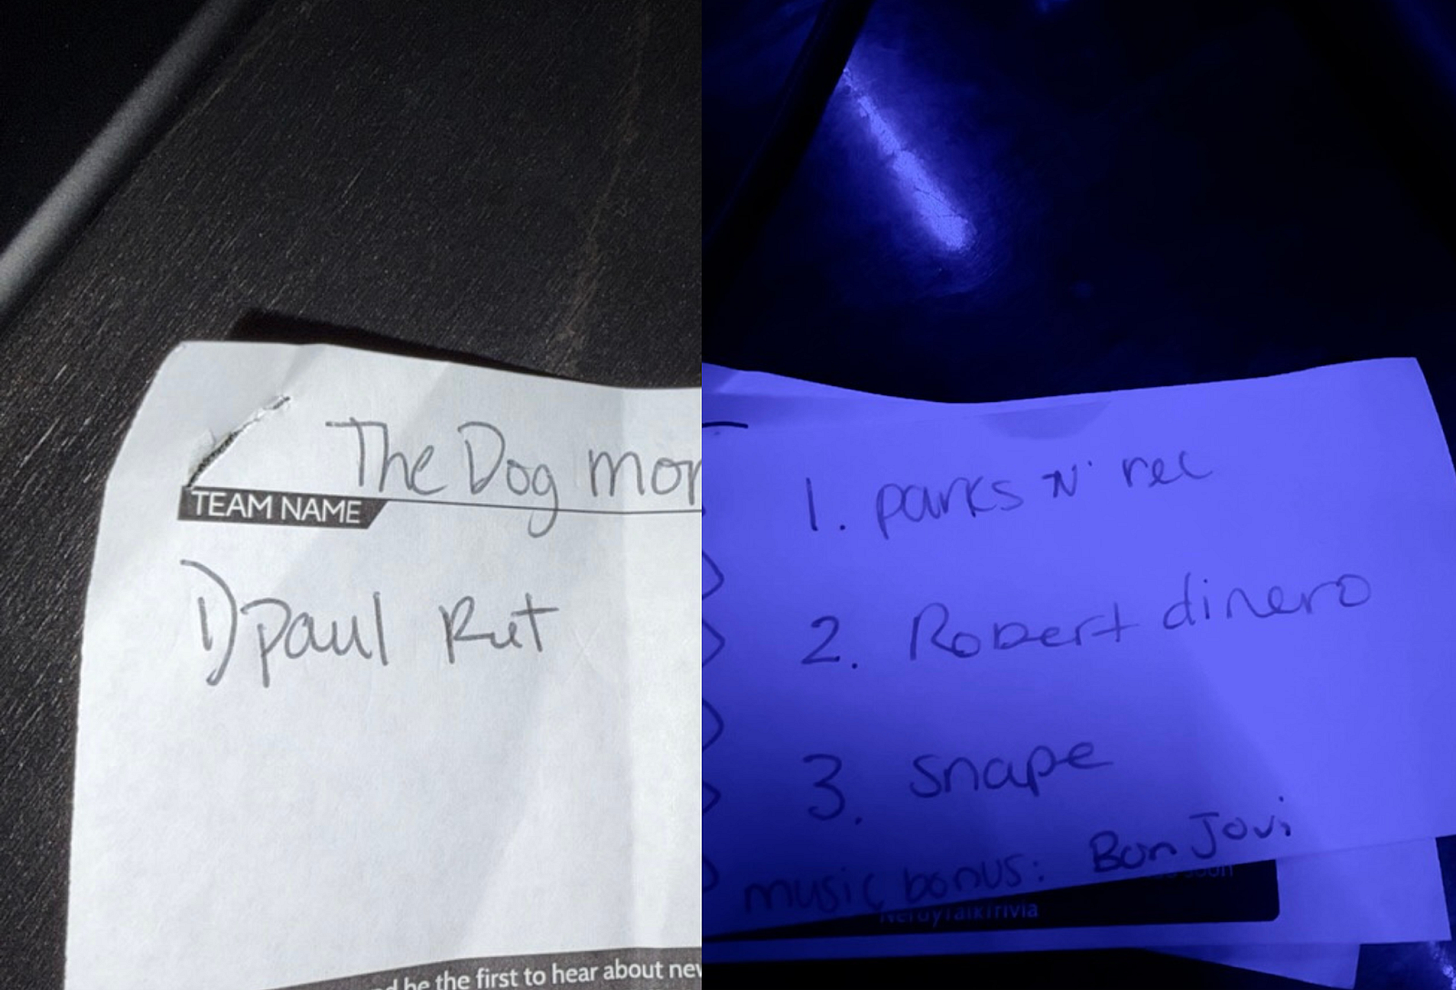 The Dog mor
TEAM NAME
1) Paul Rut
d be the first to hear about new
1. parks N' rec
2. Robert dinero
3. snape
music bonus: Bon Jovi
soon
NerdyTalkTrivia